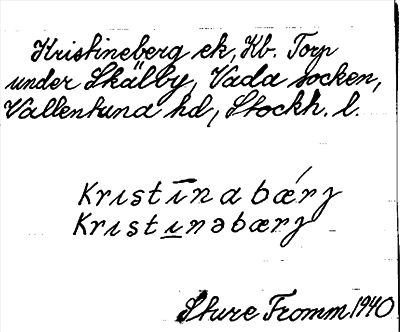 Kristineberg ek, Kb. Torp
under Skälby, Vada socken,
Vallentuna hd, Stockh. l.
Krıstīnabǽrj
Krıstı̲nəbærj
Sture Fromm 1940